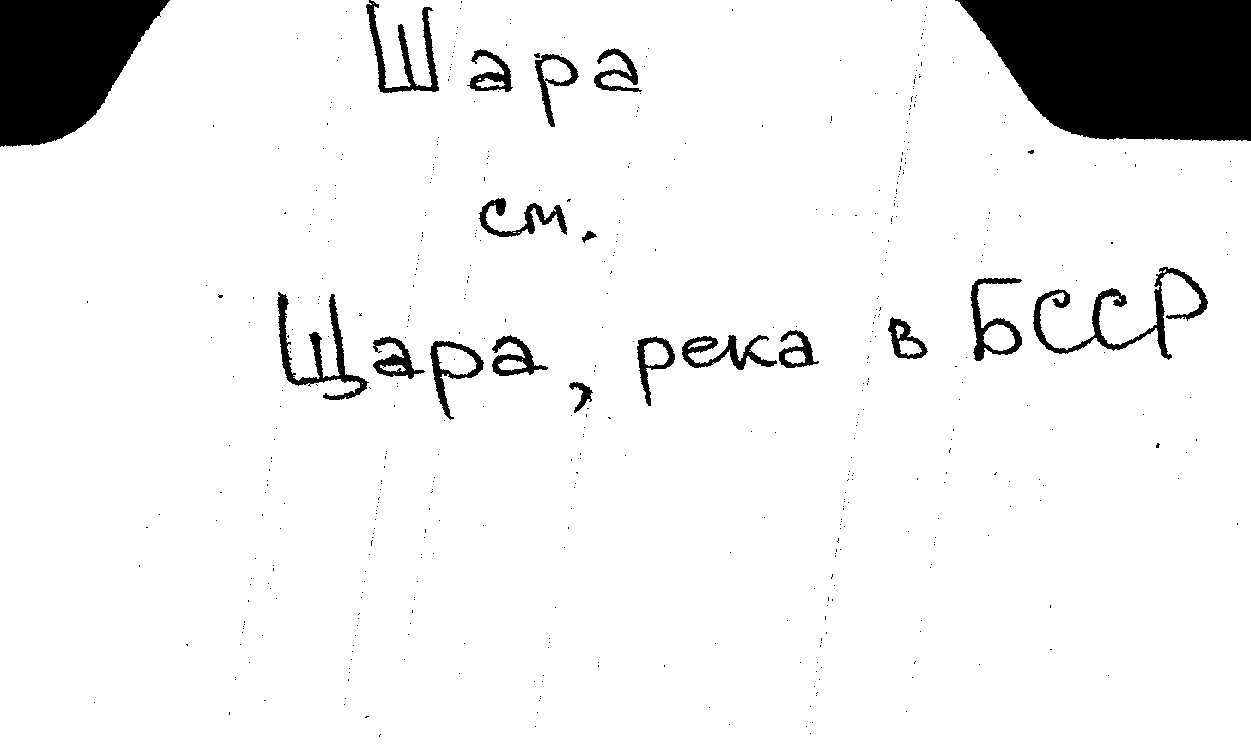 Шара
см.
Щара, река в БССР